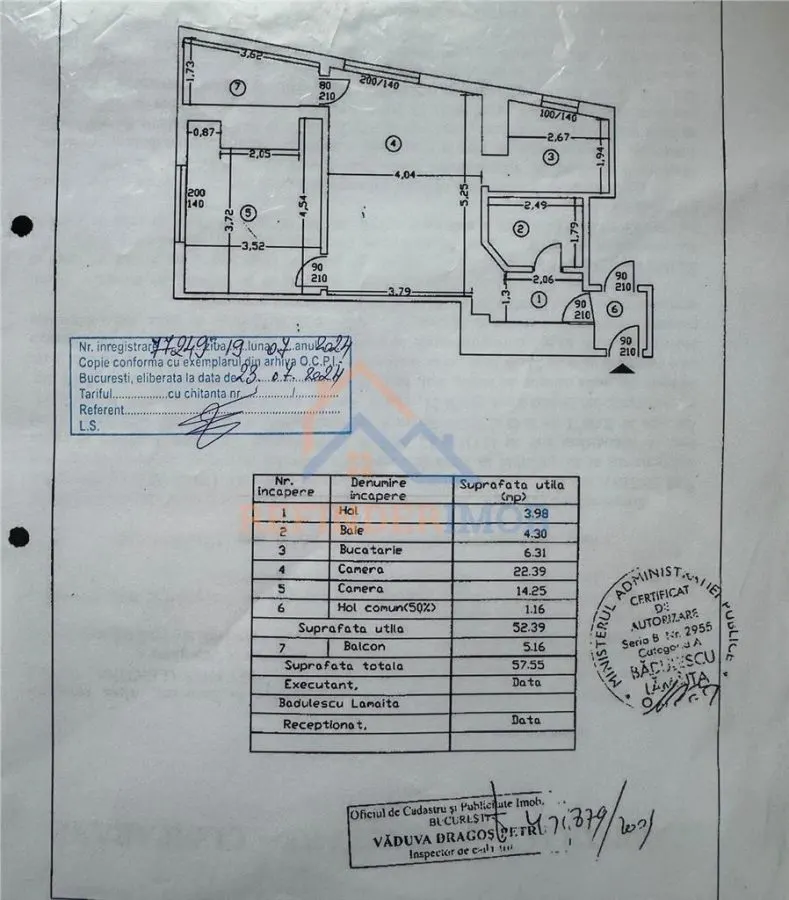 3,62
1,73
7
80
210
200/140
100/140
0,87
2,67
4
3
1,94
2,05
4,04
200
140
5,25
4,54
3,72
5
2,49
2
1,79
3,52
90
210
2,06
90
210
1,3
1
90
210
6
3,79
90
210
Nr. inregistrare 77249 ziua 19 luna 07 anul 2024
Copie conforma cu exemplarul din arhiva O.C.P.I.
Bucuresti, eliberata la data de 23.07.2024
Tariful..................cu chitanta nr............/............
Referent..........................................................
L.S.
Nr. incapere Denumire incapere Suprafata utila (mp)
1 Hol 3.98
2 Baie 4.30
3 Bucatarie 6.31
4 Camera 22.39
5 Camera 14.25
6 Hol comun(50%) 1.16
Suprafata utila 52.39
7 Balcon 5.16
Suprafata totala 57.55
Executant, Data
Badulescu Lamaita
Receptionat, Data
REFINDER IMOB
MINISTERUL ADMINISTRATIEI PUBLICE
CERTIFICAT
DE
AUTORIZARE
Seria B Nr. 2955
Categoria A
BĂDULESCU
LĂMÂIȚA
Oficiul de Cadastru și Publicitate Imob.
BUCUREȘTI
VĂDUVA DRAGOȘ PETRU
Inspector de